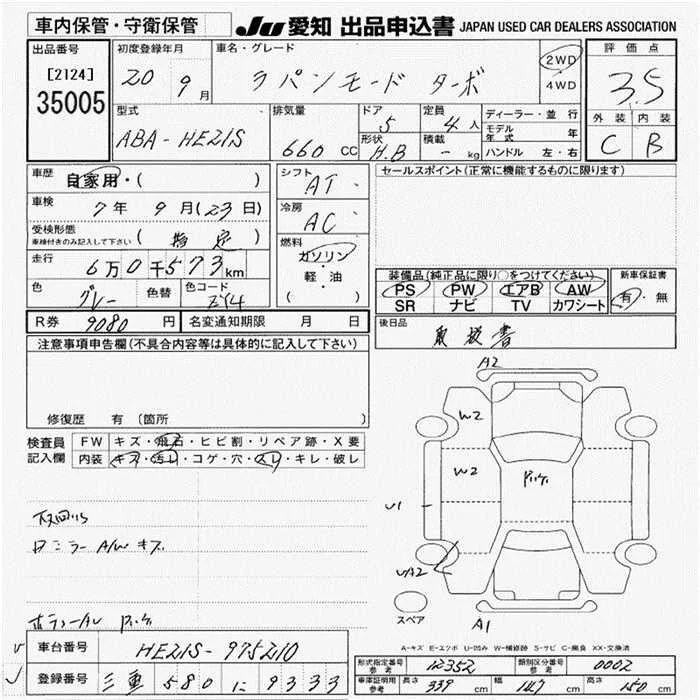 車内保管・守衛保管
JU 愛知 出品申込書 JAPAN USED CAR DEALERS ASSOCIATION
出品番号
[2124]
35005
初度登録年月
20 9月
車名・グレード
ラパンモード ターボ
2WD
4WD
評価点
3.5
外装 内装
C B
型式
ABA-HE21S
排気量
660 CC
ドア
5
形状
H.B
定員
4人
積載
- kg
ディーラー・並行
モデル年式 年
ハンドル 左・右
車歴
自家用・( )
車検
7年 9月(23日)
受検形態
車検付きのみ記入して下さい
(指定)
走行
6万0千573km
色
グレー
色替
色コード
ZY4
シフト
AT
冷房
AC
燃料
ガソリン・
軽・油
( )
セールスポイント(正常に機能するものに限ります)
装備品(純正品に限り○をつけてください)
PS PW エアB AW
SR ナビ TV カワシート
新車保証書
有・無
R券 9080 円
名変通知期限 月 日
後日品
取扱書
注意事項申告欄(不具合内容等は具体的に記入して下さい)
修復歴 有(箇所 )
検査員
記入欄
FW キズ・飛石・ヒビ割・リペア跡・X要
内装 キズ・汚レ・コゲ・穴・スレ・キレ・破レ
ミラー A/W キズ
A2
W2
W2
U1
UA2
A1
スペア
A-キズ E-エクボ U-凹み W-補修跡 S-サビ C-腐食 XX-交換済
車台番号
HE21S-975210
登録番号
三重 580 に 9333
形式指定番号
参考
12352
類別区分番号
参考
0002
車庫証明用
参考
長さ
339 cm
幅
147 cm
高さ
150 cm